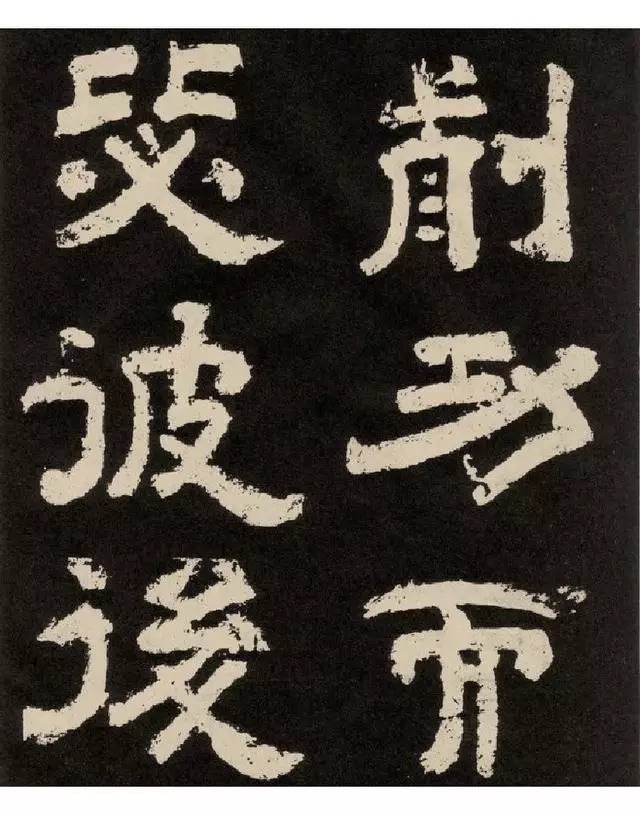 前功而
彼後